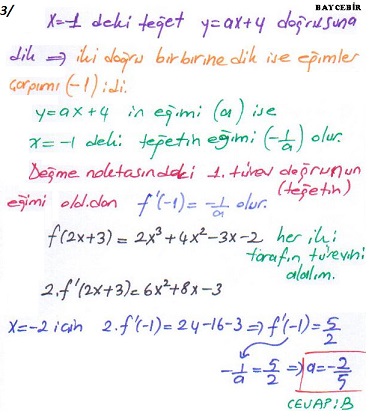 3/ BAYCEBİR
x=-1 deki teğet y=ax+4 doğrusuna
dik ⇒ iki doğru birbirine dik ise eğimler
çarpımı (-1) idi.
y=ax+4 ün eğimi (a) ise
x=-1 deki teğetin eğimi (-1/a) olur.
Değme noktasındaki 1. türev doğrunun
(teğetin)
eğimi old.dan f'(-1) = -1/a olur.
f(2x+3) = 2x³+4x²-3x-2 her iki
tarafın türevini
alalım.
2.f'(2x+3)=6x²+8x-3
x=-2 için 2.f'(-1)=24-16-3 ⇒ f'(-1)=5/2
-1/a = 5/2 ⇒ a=-2/5
CEVAP: B